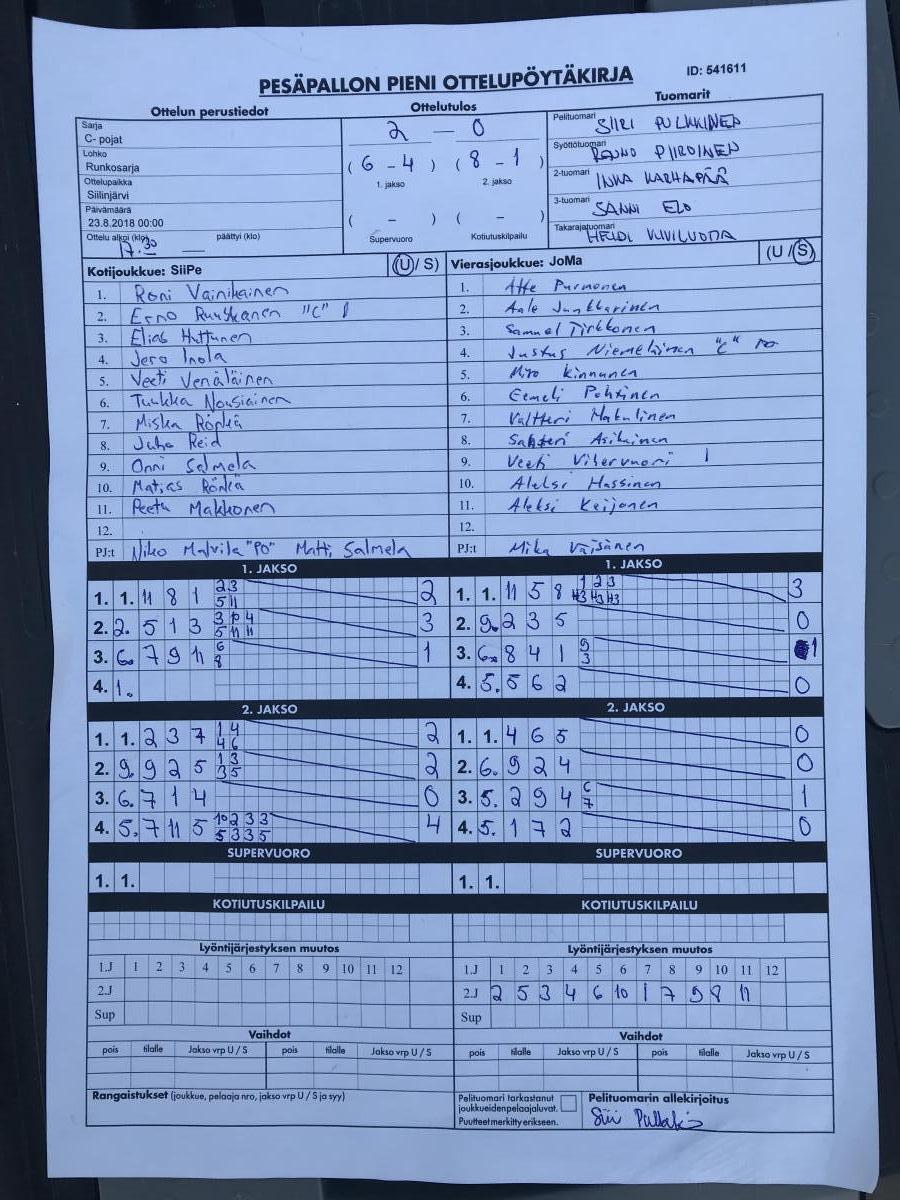 PESÄPALLON PIENI OTTELUPÖYTÄKIRJA
ID: 541611
Ottelun perustiedot
Sarja
C- pojat
Lohko
Runkosarja
Ottelupaikka
Siilinjärvi
Päivämäärä
23.8.2018 00:00
Ottelu alkoi (klo) 17.30 päättyi (klo)
Ottelutulos
2 – 0
(6 - 4) (8 - 1)
1. jakso 2. jakso
( - ) ( - )
Supervuoro Kotiutuskilpailu
Tuomarit
Pelituomari SIIRI PULKKINEN
Syöttötuomari PIIROINEN
2-tuomari INKA KARHAPÄÄ
3-tuomari SANNI ELO
Takarajatuomari HEIDI
Kotijoukkue: SiiPe (U / S)
1. Roni Vainikainen
2. Erno Ruuskanen "C" |
3. Elias Huttunen
4. Jero Inola
5. Veeti Venäläinen
6. Tuukka Nousiainen
7. Miska Rönkä
8. Juho Reid
9. Onni Salmela
10. Matias Rönkä
11. Peetu Makkonen
12.
PJ:t Niko "PO" Matti Salmela
Vierasjoukkue: JoMa (U / S)
1. Atte Purmonen
2. Aale Junkkarinen
3. Samuel Tirkkonen
4. Justus Niemeläinen "C"
5. Miro Kinnunen
6. Eemeli Pohtinen
7. Valtteri Makulinen
8. Santeri Asikainen
9. Veeti Vihervuori |
10. Aleksi Hassinen
11. Aleksi Keijonen
12.
PJ:t Mika Väisänen
1. JAKSO
1. 1. 11 8 1 2 3 2
5 11
2. 2. 5 1 3 3 10 4 3
5 11 11
3. 6. 7 9 11 6 1
8
4. 1.
1. JAKSO
1. 1. 11 5 8 1 2 3 3
2. 9. 2 3 5 0
3. 6. 8 4 1 9 1
3
4. 5. 5 6 2 0
2. JAKSO
1. 1. 2 3 7 1 4 2
4 6
2. 9. 9 2 5 1 3 2
3 5
3. 6. 7 1 4 0
4. 5. 7 11 5 10 2 3 3 4
5 3 3 5
2. JAKSO
1. 1. 4 6 5 0
2. 6. 9 2 4 0
3. 5. 2 9 4 6 1
7
4. 5. 1 7 2 0
SUPERVUORO
1. 1.
SUPERVUORO
1. 1.
KOTIUTUSKILPAILU
KOTIUTUSKILPAILU
Lyöntijärjestyksen muutos
1.J 1 2 3 4 5 6 7 8 9 10 11 12
2.J
Sup
Lyöntijärjestyksen muutos
1.J 1 2 3 4 5 6 7 8 9 10 11 12
2.J 2 5 3 4 6 10 1 7 9 8 11
Sup
Vaihdot
pois tilalle Jakso vrp U / S pois tilalle Jakso vrp U / S
Vaihdot
pois tilalle Jakso vrp U / S pois tilalle Jakso vrp U / S
Rangaistukset (joukkue, pelaaja nro, jakso vrp U / S ja syy)
Pelituomari tarkastanut
joukkueidenpelaajaluvat.
Puutteet merkitty erikseen.
Pelituomarin allekirjoitus
Siiri